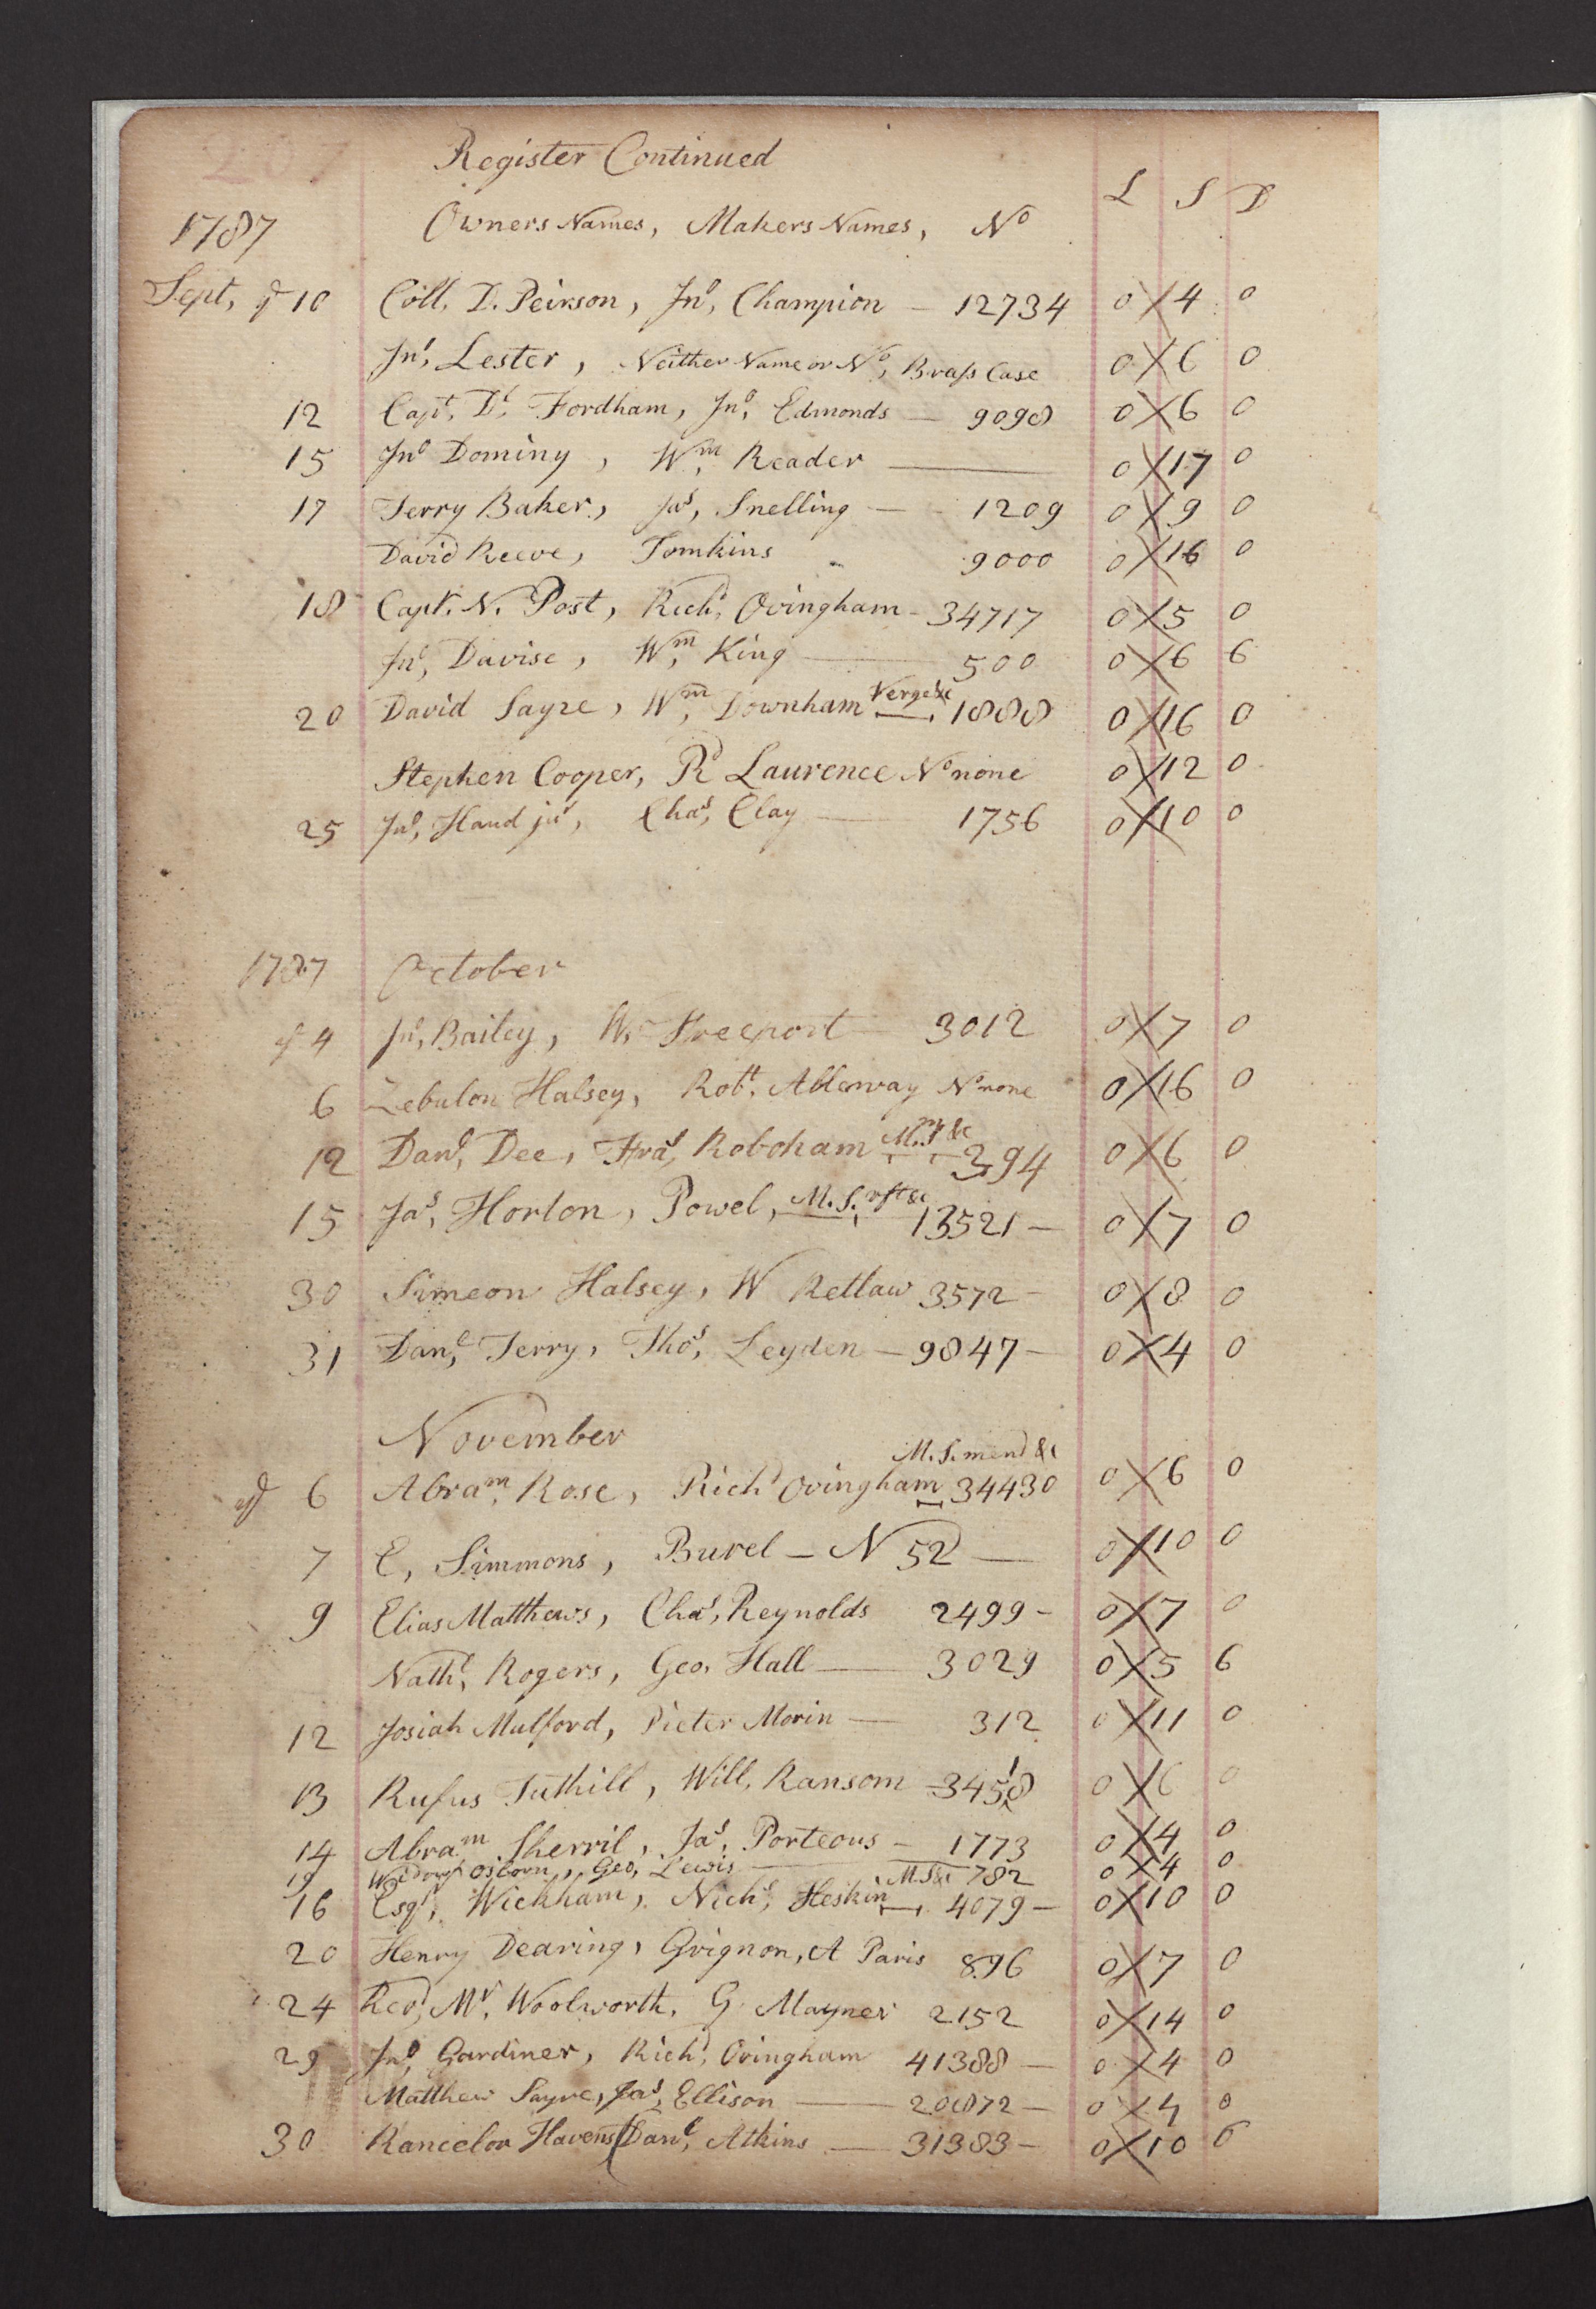 207
Register Continued
L S D
1787 Owners Names, Makers Names, No
Sept, ye 10 Coll, D. Peirson, Jno, Champion — 12734 0 4 0
Jno, Lester, Neither Name or No, Brass Case 0 6 0
12 Capt, Dl, Fordham, Jno, Edmonds — 9098 0 6 0
15 Jno Dominy, Wm, Reader — 0 17 0
17 Terry Baker, Jas, Snelling — 1209 0 9 0
David Reeve, Tomkins 9000 0 16 0
18 Capt. N. Post, Richd, Ovingham - 34717 0 5 0
Jno, Davise, Wm, King — 500 0 6 6
20 David Sayre, Wm, Downham Verge &c 1888 0 16 0
Stephen Cooper, Rd Laurence No none 0 12 0
25 Jno, Hand jur, Chas, Clay — 1756 0 10 0
1787 October
ye 4 Jno, Bailey, W. Freeport 3012 0 7 0
6 Zebulon Halsey, Robt, Allenway No none 0 16 0
12 Danl, Dee, Fras, Roboham 394 0 6 0
15 Jas, Horton, Powel, M. S. &c 13521 — 0 7 0
30 Simeon Halsey, W Retlaw 3572 - 0 8 0
31 Danl, Terry, Thos, Leyden — 9847 — 0 4 0
November
M. S. mend &c
ye 6 Abram, Rose, Richd Ovingham 34430 0 6 0
7 E, Simmons, Burel — N 52 — 0 10 0
9 Elias Matthews, Chas, Reynolds 2499 - 0 7 0
Nathl, Rogers, Geo. Hall — 3029 0 5 6
12 Josiah Mulford, Pieter Morin — 312 0 11 0
13 Rufus Tuthill, Will, Ransom 0 6 0
14 Abram Sherril, Jas, Porteous - 1773 0 14 0
Widow Osborn, Geo, Lewis — 782 0 4 0
16 Esqr, Wickham, Nichs, Heskin M. S &c 4079 — 0 10 0
20 Henry Dearing, Grignon, A Paris 896 0 7 0
24 Revd, Mr, Woolworth, G Mayner 2152 0 14 0
29 Jno, Gardiner, Richd, Ovingham 41388 — 0 4 0
Matthew Sayre, Jas, Ellison — 20872 — 0 4 0
30 Rancelor Havens Danl, Atkins — 31383 — 0 10 6